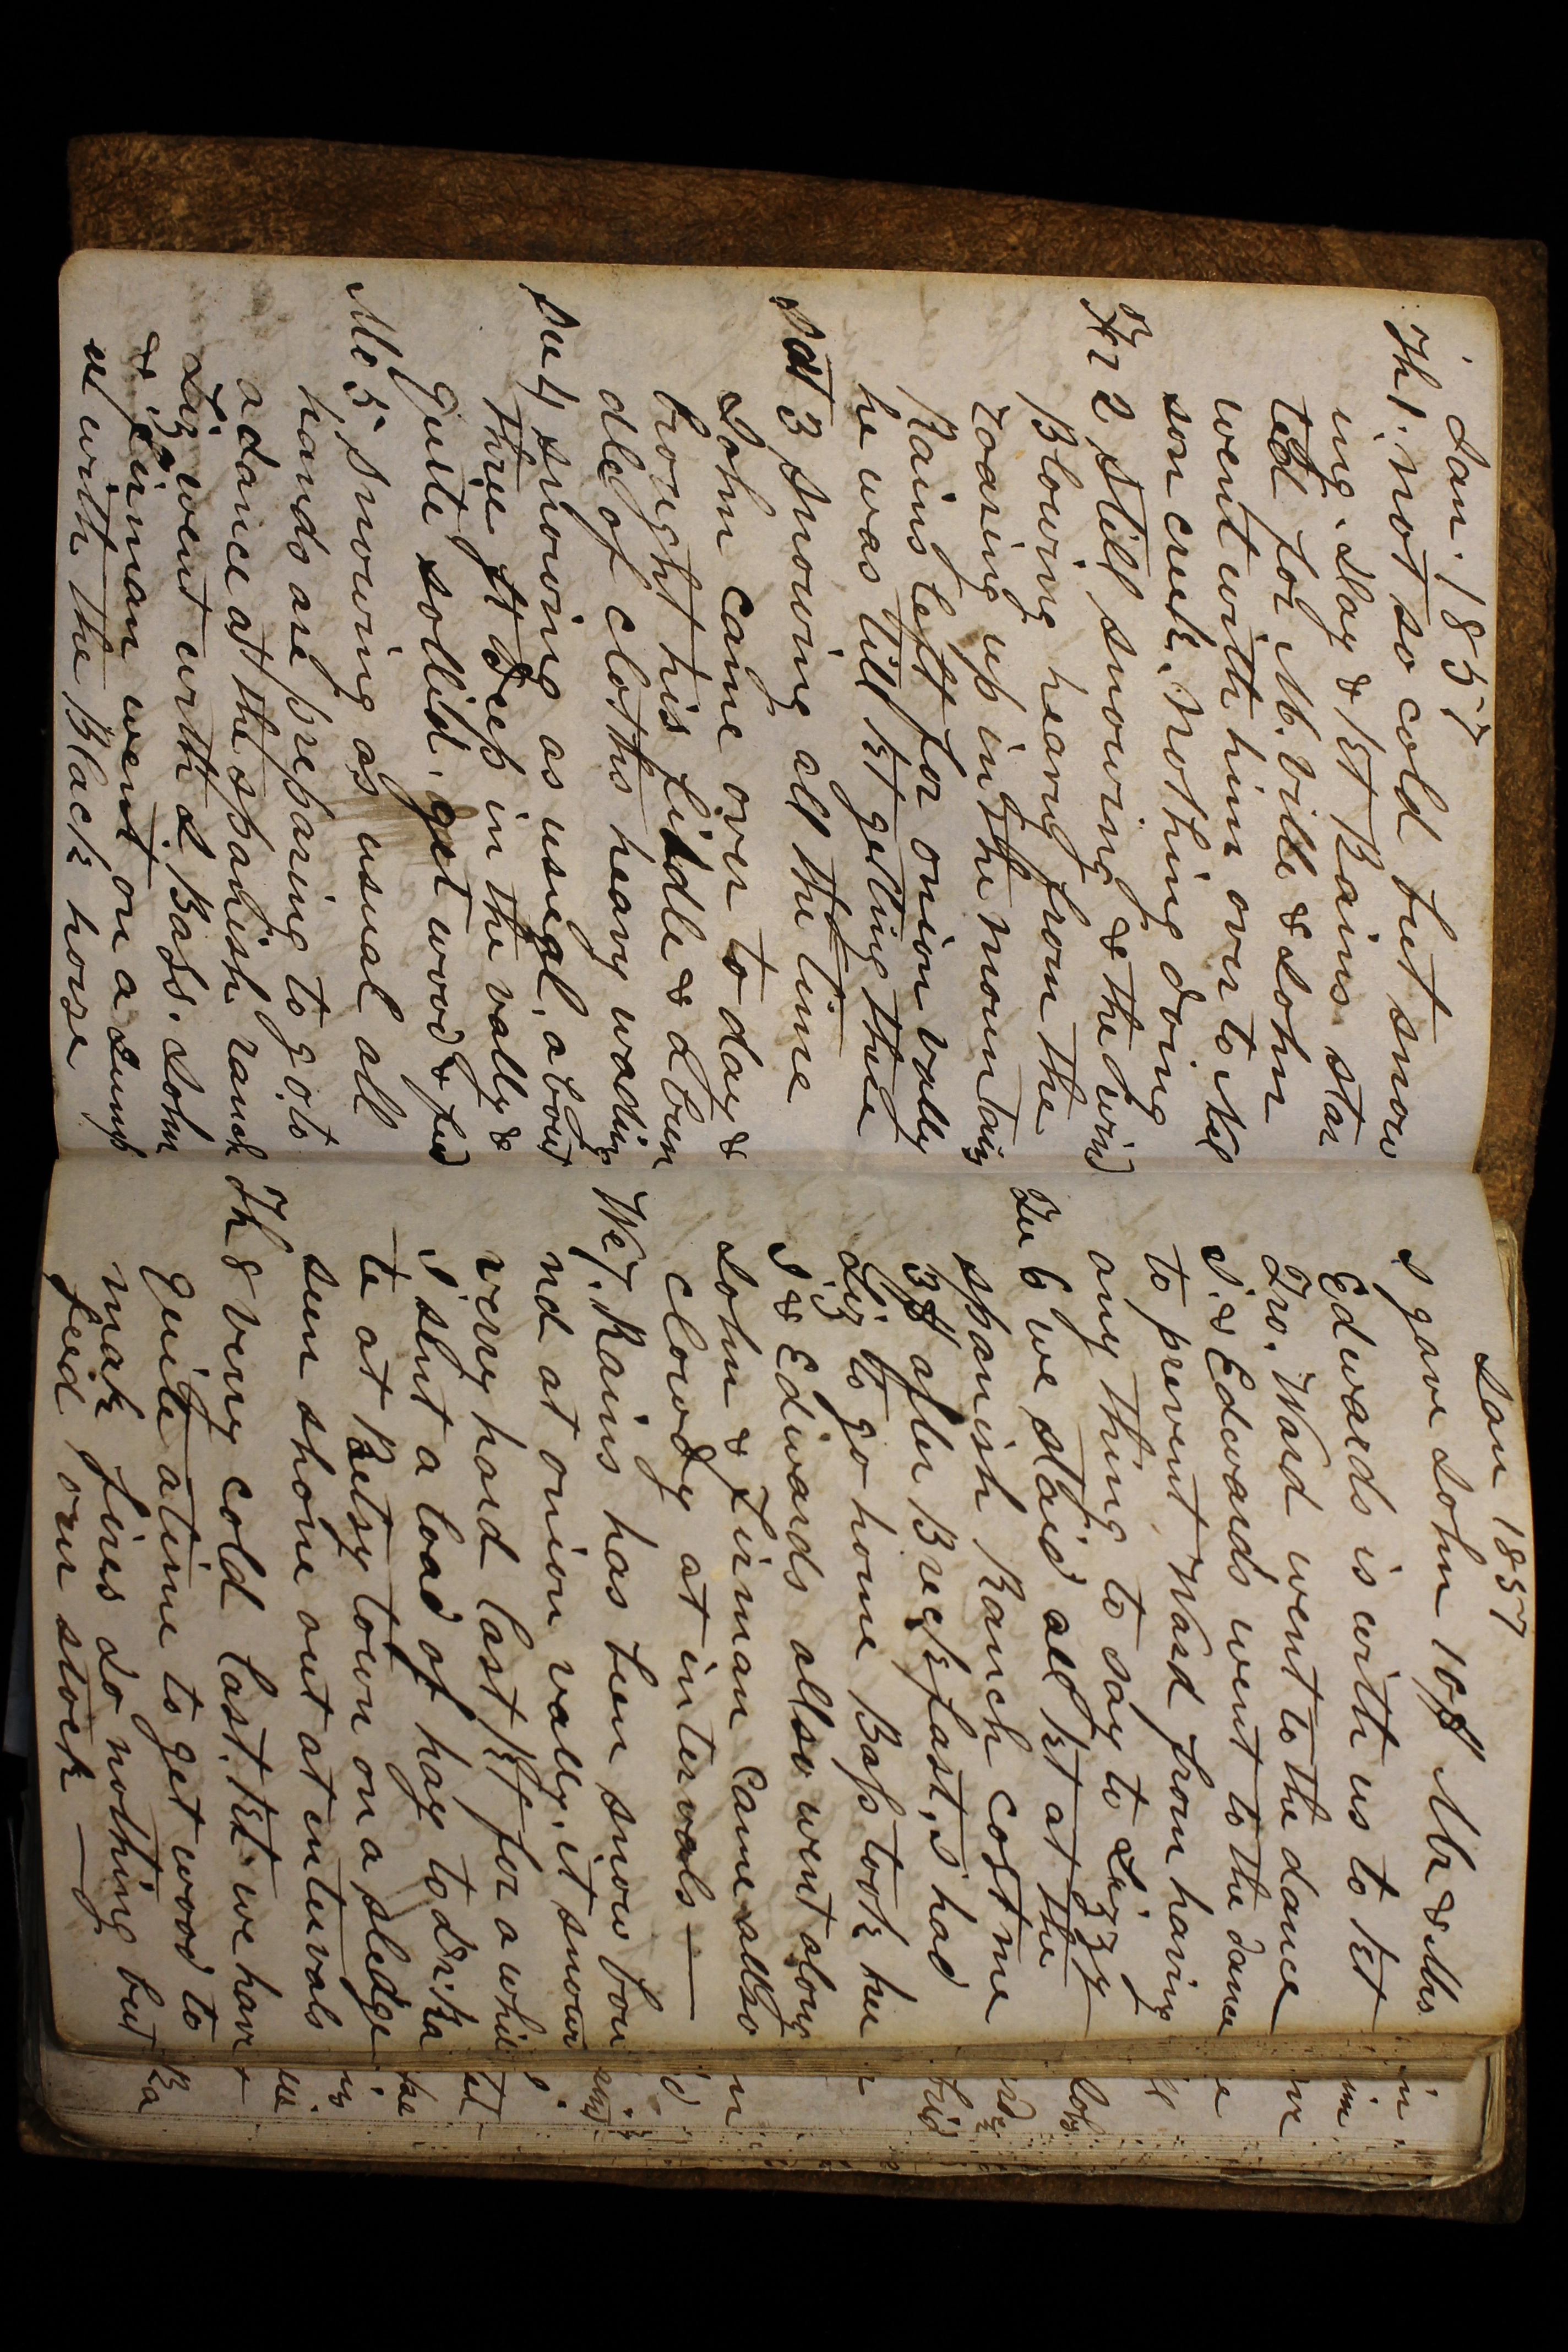 Jan. 1857
Th 1. not so cold but snow
ing. Clay & 1st Bains star
ted for M. ville & John
went with him over to Nel
son creek. Nothing doing
Fr 2 still snowing & the wind
Blowing heavy from the
roaring up in the mountains
Rains left for onion vally
he was till 1st getting thare
Sat 3 snowing all the time
John came over to day &
brought his fiddle & a bun
dle of cloths heavy wading
Su 4 snowing as usegl, about
three ft deep in the vally &
quite sollid. get wood & feed
Mo 5 snowing as usual all
hands are preparing to go to
a dance at the spanish ranch
Liz went with J. Bass. John
& Firman went on a
me with the Black horse
Jan 1857
I gave John 10$ Mr & Mrs
Edwards is with us to 1st
Fro. Ward went to the dance
I. & Edwards went to the dance
to prevent Ward from having
any thing to say to Lizzy
Tu 6 we staid all 1st at the
spanish Ranch cost me
3$ after Breckfast, I had
Liz to go home Bass took her
I & Edwards allso went along
John & Firman Came allso
clowdy at intervals —
We 7. Rains has been snow bou
nd at onion vally. it snow
verry hard last 1st for a while
I sent a load of hay to
te at Betsy town on a sledge
sun shone out at intervals
Th 8 very cold last. 1st. we have
quite a time to get wood to
mak fires do nothing but
feed our stock —